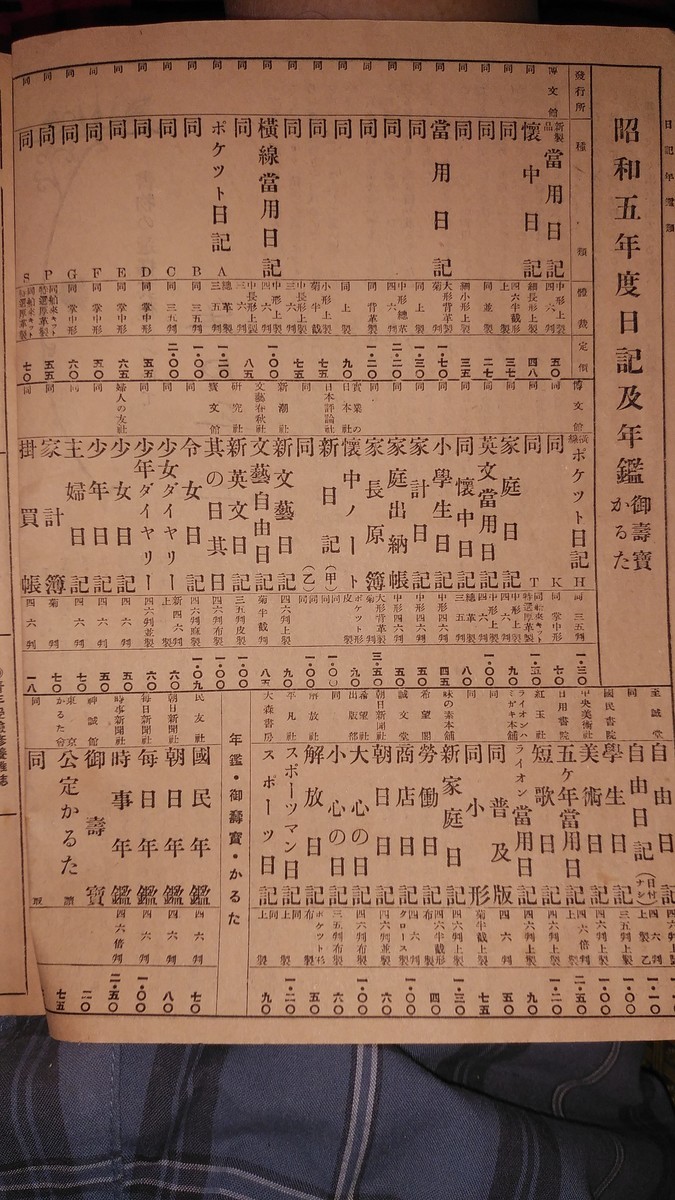 日記年鑑類
昭和五年度日記及年鑑 御壽寶 かるた
發行所 種類 體裁 定價
博文館 新製品 當用日記 中形上製 四六判 五〇
同 懷中日記 細長形上製 四八
同 同 四六半截形上製 三七
同 同 同並製 二七
同 同 細小形上製 三五
同 當用日記 大形背革製 菊判 一・七〇
同 同 同上製 一・三〇
同 同 中形總革 四六判 二・〇〇
同 同 同背革製 一・二〇
同 同 同上製 九〇
同 同 小形上製 菊半截 七五
同 同 中長形上製 三六判 七五
同 橫線當用日記 中形上製 四六判 一・〇〇
同 同 中長形上製 三六判 八五
同 ポケツト日記 A 總革製 三五判 一・二〇
同 同 B 同三五判 一・〇〇
同 同 C 同三九判 二・〇〇
同 同 D 同掌中形 五五
同 同 E 同掌中形 六五
同 同 F 同掌中形 五五
同 同 G 同掌中形 六〇
同 同 P 同舶來キツト特選厚革製 五五
同 同 S 同舶來キツト特選厚革製 七〇
博文館 橫線ポケツト日記 H 同三五判 一・三〇
同 同 K 同掌中形 七〇
同 同 T 同舶來キツト特選厚革製 一・五〇
同 家庭日記 中形上製 四六判 九〇
同 英文當用日記 中形上製 四六判 一・〇〇
同 同懷中日記 總革製 三五判 八〇
同 小學生日記 中形四六判 四五
同 家計日記 中形四六判 六〇
同 家庭出納帳 中形四六判 五〇
同 家長原簿 大形背革製 菊判 三・五〇
實業の日本社 懷中ノート ポケツト形皮製 九〇
日本評論社 新日記 (甲) 同 一・〇〇
同 同 (乙) 同 七〇
新潮社 新文藝日記 四六判上製 九〇
文藝春秋社 文藝自由日記 菊半截判 八五
研究社 新英文日記 三五判皮製 一・〇〇
寶文館 其の日其日 四六判布製 一・〇〇
同 令女日記 四六判麻製 一・〇九
同 少女ダイヤリー 新四六判上製 六〇
同 少年ダイヤリー 四六判並製 六〇
婦人の友社 少女日記 四六判 五〇
同 少年日記 四六判 五〇
同 主婦日記 四六判 七〇
同 家計簿 菊判 七〇
同 掛買帳 四六判 一八
至誠堂 自由日記 四六判 一・一〇
同 自由日記 (日付ナシ) 四六判上製 乙 一・〇〇
國民書院 學生日記 三五判上製 一・〇〇
中央美術社 美術日記 四六判上製 一・五〇
日用書院 五ケ年當用日記 四六倍判上製 二・五〇
紅玉社 短歌日記 四六判上製 一・二〇
ライオンハミガキ本舖 ライオン當用日記 四六判上製 九〇
同 普及版 四六判 五〇
同 小形 菊半截上製 七五
味の素本舖 新家庭日記 四六判上製 一・三〇
希望閣 勞働日記 四六半截判布製 四〇
誠文堂 商店日記 四六判クロース製 一・〇〇
朝日新聞社 朝日日記 四六判並製 六〇
希望社出版部 大心の日記 四六判布製 一・〇〇
同 小心の日記 三五判布製 六〇
解放社 解放日記 ポケツト形布製 五〇
平凡社 スポーツマン日記 同上製 一・二〇
大森書房 スポーツ日記 同上製 九〇
年鑑・御壽寶・かるた
民友社 國民年鑑 四六判 七〇
朝日新聞社 朝日年鑑 四六判 八〇
每日新聞社 每日年鑑 四六判 一・〇〇
時事新聞社 時事年鑑 四六倍判 二・五〇
神誠館 御壽寶 二〇
東京かるた會 公定かるた 讀 七五
同 同 取